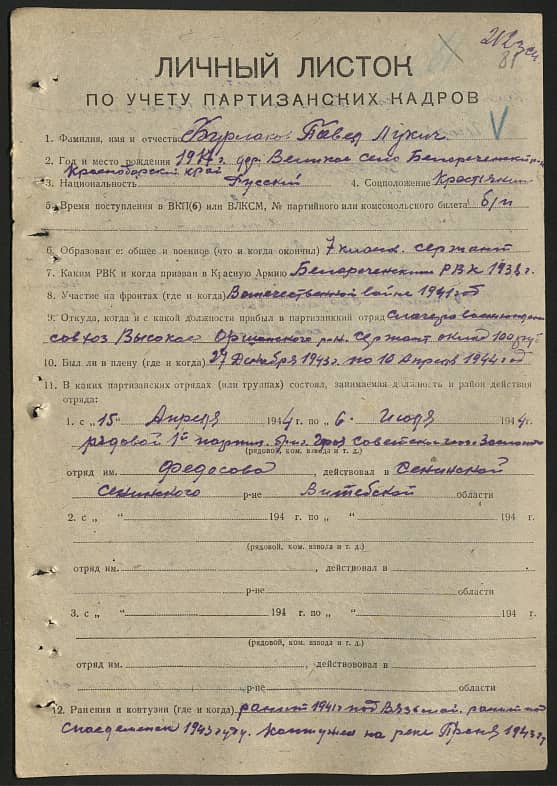 ЛИЧНЫЙ ЛИСТОК
ПО УЧЕТУ ПАРТИЗАНСКИХ КАДРОВ
1. Фамилия, имя и отчество Бурлаков Павел Лукич
2. Год и место рождения 1917 г. дер. Великое село Белореченский
Краснодарский край
3. Национальность Русский 4. Соцположение Крестьянин
5. Время поступления в ВКП(б) или ВЛКСМ, № партийного или комсомольского билета б/п
6. Образование: общее и военное (что и когда окончил) 7 класс. сержант
7. Каким РВК и когда призван в Красную Армию Белореченским РВК 1938 г.
8. Участие на фронтах (где и когда) В отечественной войне 1941 год
9. Откуда, когда и с какой должности прибыл в партизанский отряд
Оршанского р-н. сержант
10. Был ли в плену (где и когда) 27 Декабря 1943 г. по 10 Апреля 1944 год
11. В каких партизанских отрядах (или группах) состоял, занимаемая должность и район действия
отряда:
1. с „15“ Апреля 1944 г. по „6“ Июля 1944 г.
рядовой 1й партиз. бриг.
(рядовой, ком. взвода и т. д.)
отряд им. Федосова, действовал в Сенинской
Сенинского р-не Витебской области
2. с „ “ 194 г. по „ “ 194 г.
(рядовой, ком. взвода и т. д.)
отряд им. , действовал в
р-не области
3. с „ “ 194 г. по „ “ 194 г.
(рядовой, ком. взвода и т. д.)
отряд им. , действовал в
р-не области
12. Ранения и контузии (где и когда) ранен 1941 г под Вязьмой. ранен под
1943 году. Контужен на реке Проня 1943 г